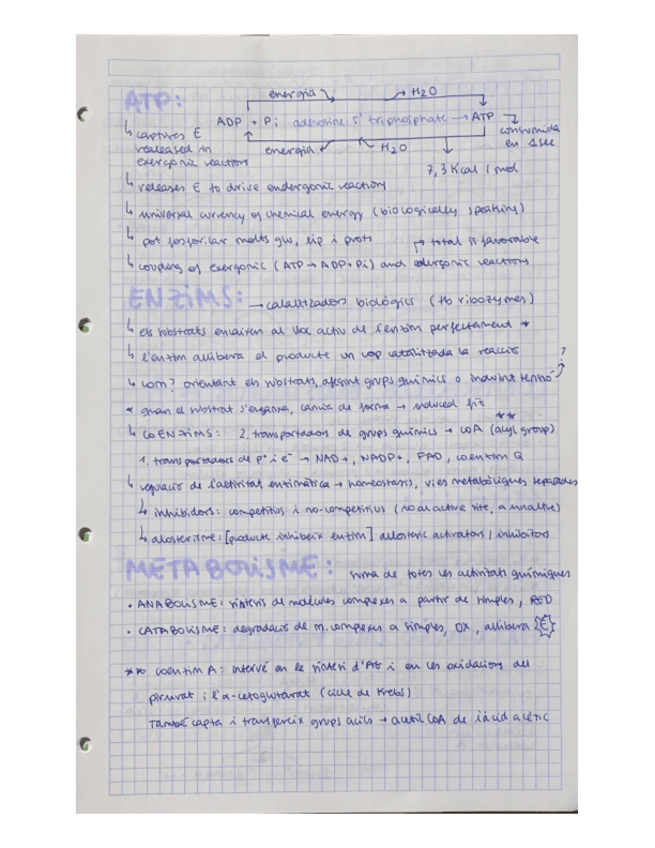 ATP:
energia → H2O
ADP + Pi adenosine 5' triphosphate → ATP → consumida en 1 sec
energia H2O
7,3 Kcal / mol
↳ captures E released in exergonic reaction
↳ releases E to drive endergonic reaction
↳ universal currency of chemical energy (biologically speaking)
↳ pot fosforilar molts glu, lip i prots → total is favorable
↳ coupling of exergonic (ATP → ADP + Pi) and edergonic reactions
ENZIMS: → catalitzadors biològics (tb ribozymes)
↳ els substrats encaixen al lloc actiu de l'enzim perfectament *
↳ l'enzim allibera el producte un cop catalitzada la reacció
↳ com? orientant els substrats, afegint grups químics o induint tensió ?
* quan el substrat s'enganxa, canvia de forma → induced fit
↳ COENZIMS: 2. transportadors de grups químics → CoA (acyl group) **
1. transportadors de p+ i e- → NAD+, NADP+, FAD, coenzim Q
↳ regulació de l'activitat enzimàtica → homeostasis, vies metabòliques separades
↳ inhibidors: competitius i no-competitius (no al active site, a un altre)
↳ alosterisme: [producte inhibeix enzim] allosteric activators / inhibitors
METABOLISME: suma de totes les activitats químiques
• ANABOLISME: síntesis de molècules complexes a partir de simples, RED
• CATABOLISME: degradació de m. complexes a simples, OX, allibera E
** coenzim A: intervé en la síntesi d'AG i en les oxidacions del
piruvat i l'α-cetoglutarat (cicle de Krebs)
També capta i transfereix grups acils → acetil CoA de l'àcid acètic